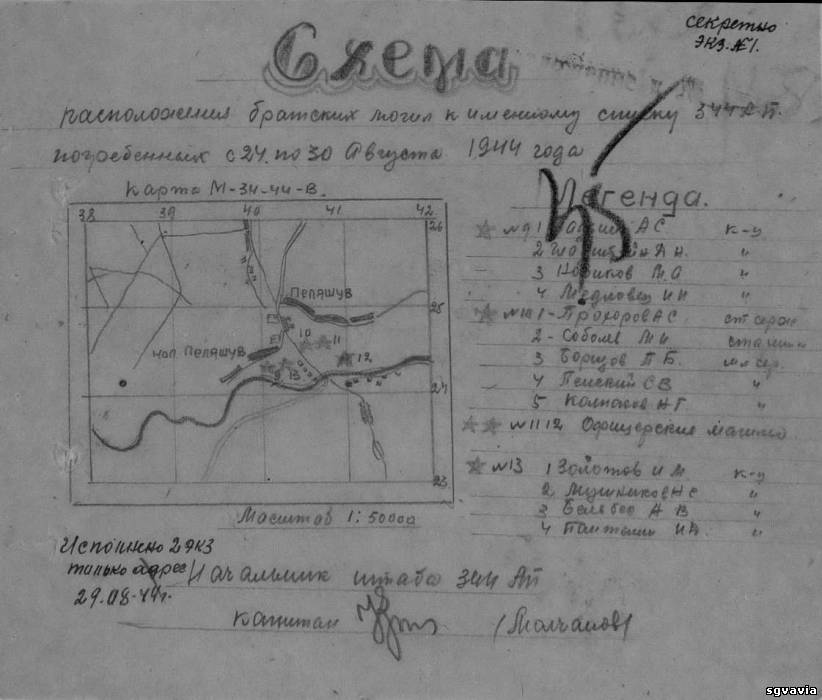 секретно
экз. №1.
Схема
расположения братских могил к именному списку 344 А.П.
погребенных с 24 по 30 Августа 1944 года
Карта М-34-44-В.
38 39 40 41 42
26
25
24
23
Пеляшув
Чол Пеляшув
10
11
12
9
13
Масштаб 1:50000
Легенда.
№9 1 АС к-ц
2 А И. "
3 Новиков М.А "
4 И И "
№10 1- Прохоров АС ст серж
2- Соболев М И
3 Борцов П Б. мл сер.
4 Пенский С В "
5 Н Г "
№11 12 Офицерские
№13 1 Золотов И М к-ц
2 Н С "
3 А В "
4 И "
Исполнено 2 экз
только адрес
29.08.44г.
Начальник штаба 344 АП
капитан (Молчанов)
sgvavia